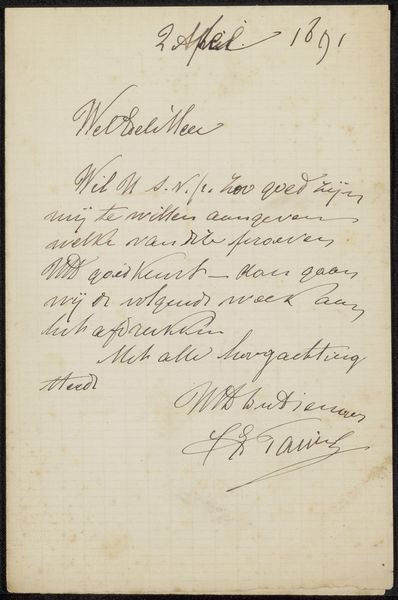 2 April 1891
WelEdele Heer
Wil U s.v.p. zoo goed zijn
mij te willen aangeven
welke van deze proeven
UEd goedkeurt – dan gaan
wij de volgende week aan
het afdrukken
Met alle hoogachting
steeds
UEd Dw Dienaar